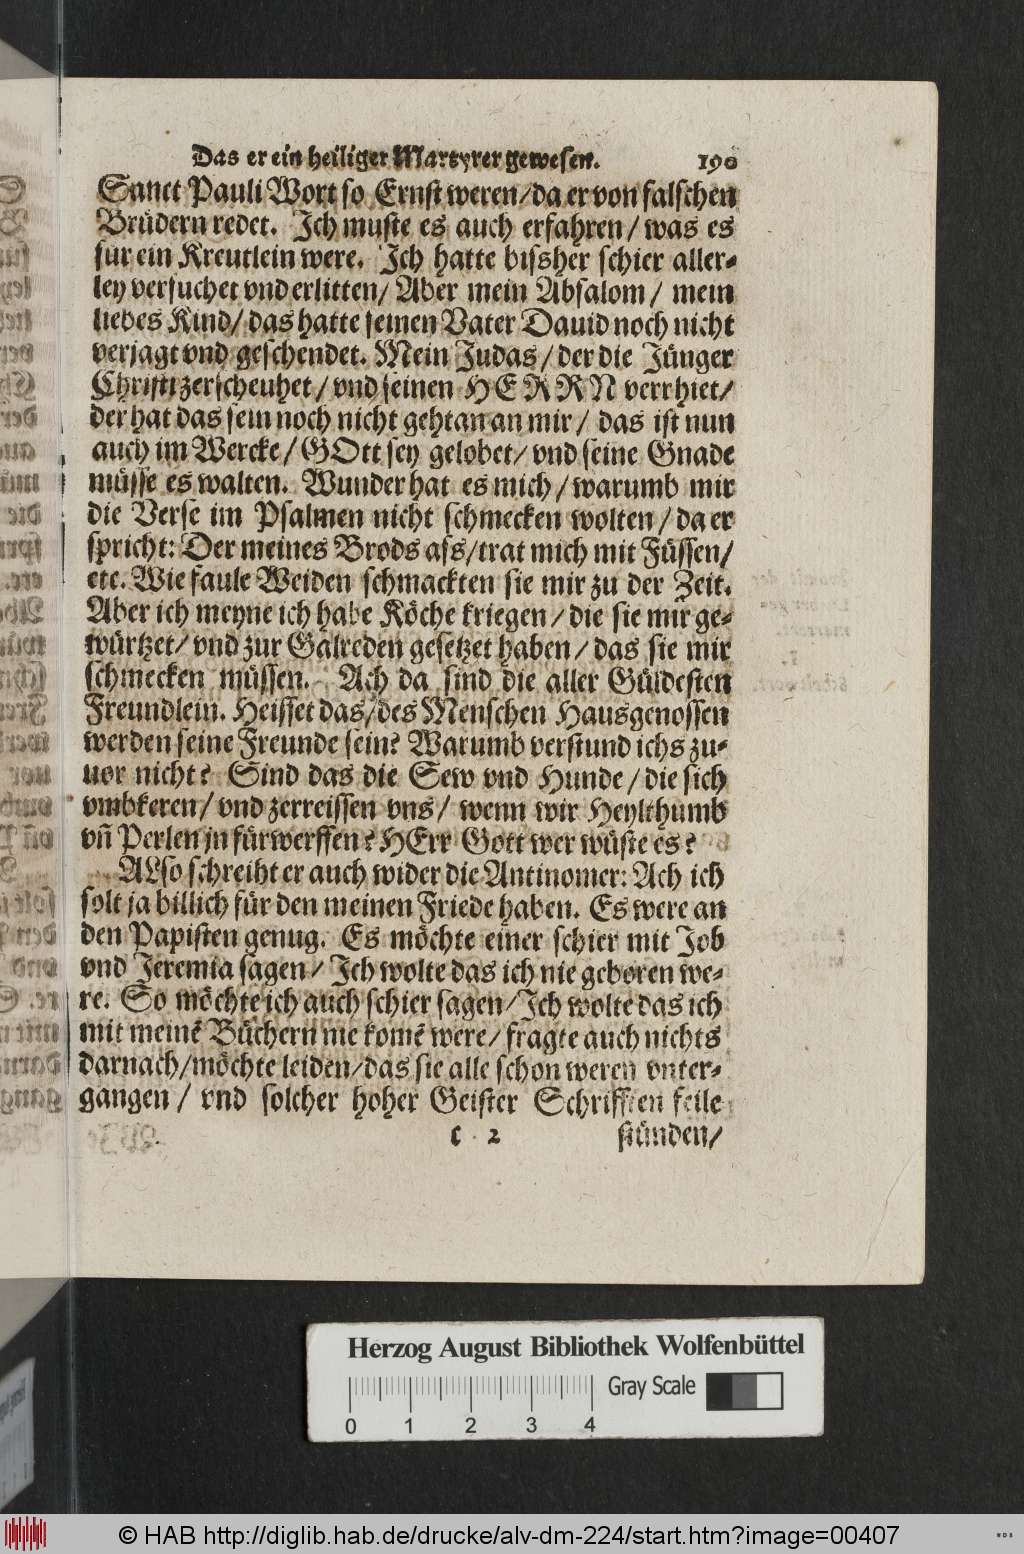 Das er ein heiliger Martyrer gewesen. 190
Sanct Pauli Wort so Ernst weren/da er von falschen
Brüdern redet. Ich muste es auch erfahren/ was es
für ein Kreutlein were. Ich hatte bissher schier aller-
ley versuchet vnd erlitten/ Aber mein Absalom/ mein
liebes Kind/ das hatte seinen Vater Dauid noch nicht
verjagt vnd geschendet. Mein Judas/ der die Jünger
Christi zerscheuhet/ vnd seinen HERRN verrhiet/
der hat das sein noch nicht gehtan an mir/ das ist nun
auch im Wercke/ GOtt sey gelobet/ vnd seine Gnade
müsse es walten. Wunder hat es mich/ warumb mir
die Verse im Psalmen nicht schmecken wolten/ da er
spricht: Der meines Brods ass/trat mich mit Füssen/
etc. Wie faule Weiden schmackten sie mir zu der Zeit.
Aber ich meyne ich habe Köche kriegen/ die sie mir ge-
würtzet/ vnd zur Galreden gesetzet haben/ das sie mir
schmecken müssen. Ach da sind die aller Güldesten
Freundlein. Heisset das/des Menschen Hausgenossen
werden seine Freunde sein? Warumb verstund ichs zu-
uor nicht? Sind das die Sew vnd Hunde/ die sich
vmbkeren/ vnd zerreissen vns/ wenn wir Heylthumb
vñ Perlen jn fürwerffen? HErr Gott wer wüste es?
ALso schreibt er auch wider die Antinomer: Ach ich
solt ja billich für den meinen Friede haben. Es were an
den Papisten genug. Es möchte einer schier mit Job
vnd Jeremia sagen/ Ich wolte das ich nie geboren we-
re. So möchte ich auch schier sagen/ Ich wolte das ich
mit meinē Büchern nie komē were/ fragte auch nichts
darnach/möchte leiden/das sie alle schon weren vnter-
gangen/ vnd solcher hoher Geister Schrifften feile
c 2 stünden/
Herzog August Bibliothek Wolfenbüttel
Gray Scale
0 1 2 3 4
© HAB http://diglib.hab.de/drucke/alv-dm-224/start.htm?image=00407